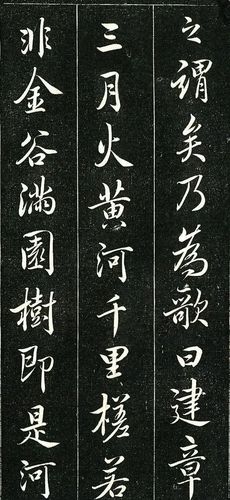 之謂矣乃為歌曰建章
三月火黃河千里槎若
非金谷滿園樹即是河